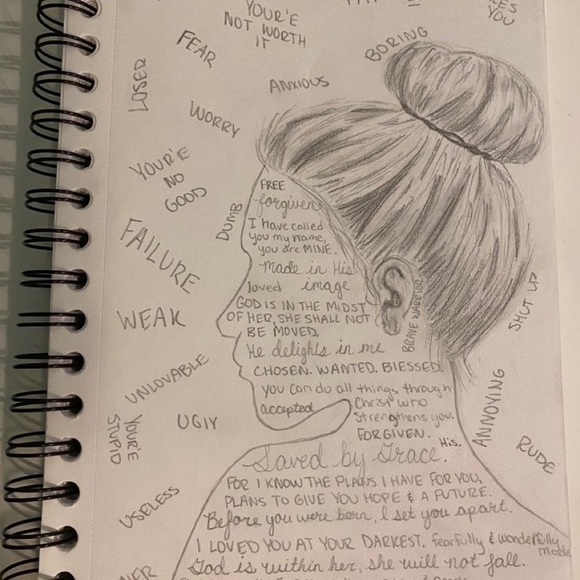 YOUR'E
NOT WORTH
IT
YOU
FEAR
BORING
LOSER
ANXIOUS
WORRY
YOUR'E
NO
GOOD
DUMB
FAILURE
WEAK
UNLOVABLE
YOUR'E
STUPID
UGLY
USELESS
SHUT UP
ANNOYING
RUDE
FREE
forgiven
I have called
you my name,
you are MINE.
made in His
loved image
GOD IS IN THE MIDST
OF HER, SHE SHALL NOT
BE MOVED.
BRAVE WARRIOR
He delights in me
CHOSEN. WANTED. BLESSED.
you can do all things through
accepted Christ who
strengthens you.
FORGIVEN.
His.
Saved by Grace.
FOR I KNOW THE PLANS I HAVE FOR YOU,
PLANS TO GIVE YOU HOPE & A FUTURE.
Before you were born, I set you apart.
I LOVED YOU AT YOUR DARKEST. fearfully & wonderfully
made
God is within her, she will not fall.